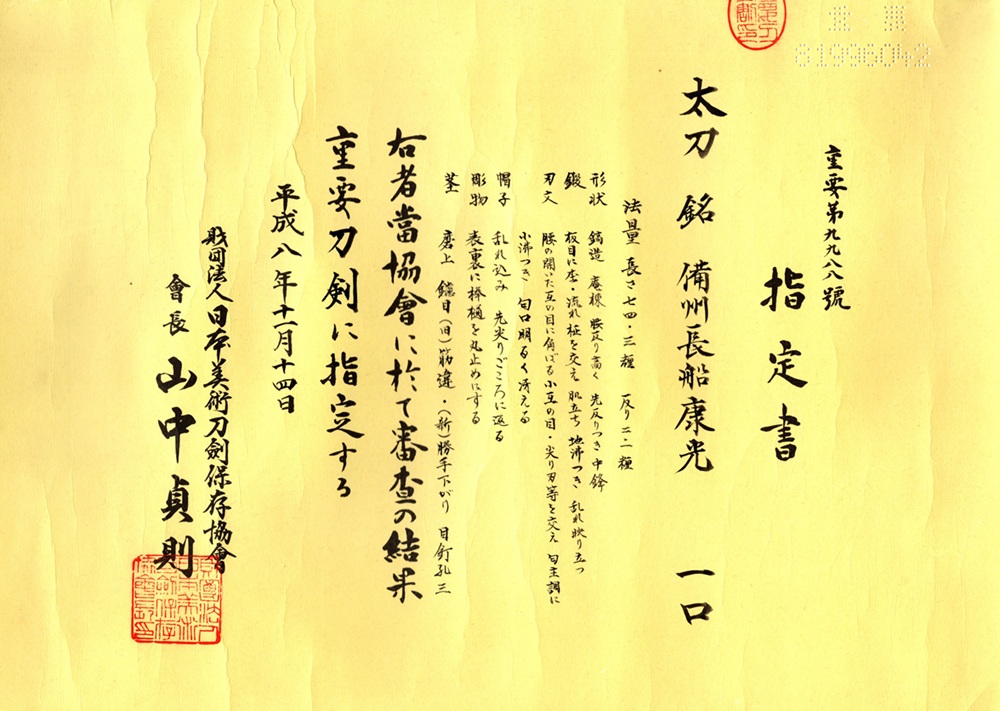 重要第九九八八號
指定書
太刀 銘 備州長船康光 一口
法量 長さ七四・三糎 反り二・二糎
形状 鎬造 庵棟 腰反り高く 先反りつき 中鋒
鍛 板目に杢・流れ柾を交え 肌立ち 地沸つき 乱れ映り立つ
刃文 腰の開いた互の目に角ばる小互の目・尖り刃等を交え 匂主調に
小沸つき 匂口明るく冴える
帽子 乱れ込み 先尖りごころに返る
彫物 表裏に棒樋を丸止めにする
茎 磨上 鑢目(旧)筋違・(新)勝手下がり 目釘孔三
右者當協會に於て審査の結果
重要刀剣に指定する
平成八年十一月十四日
財団法人日本美術刀劍保存協會
會長 山中貞則
61996042